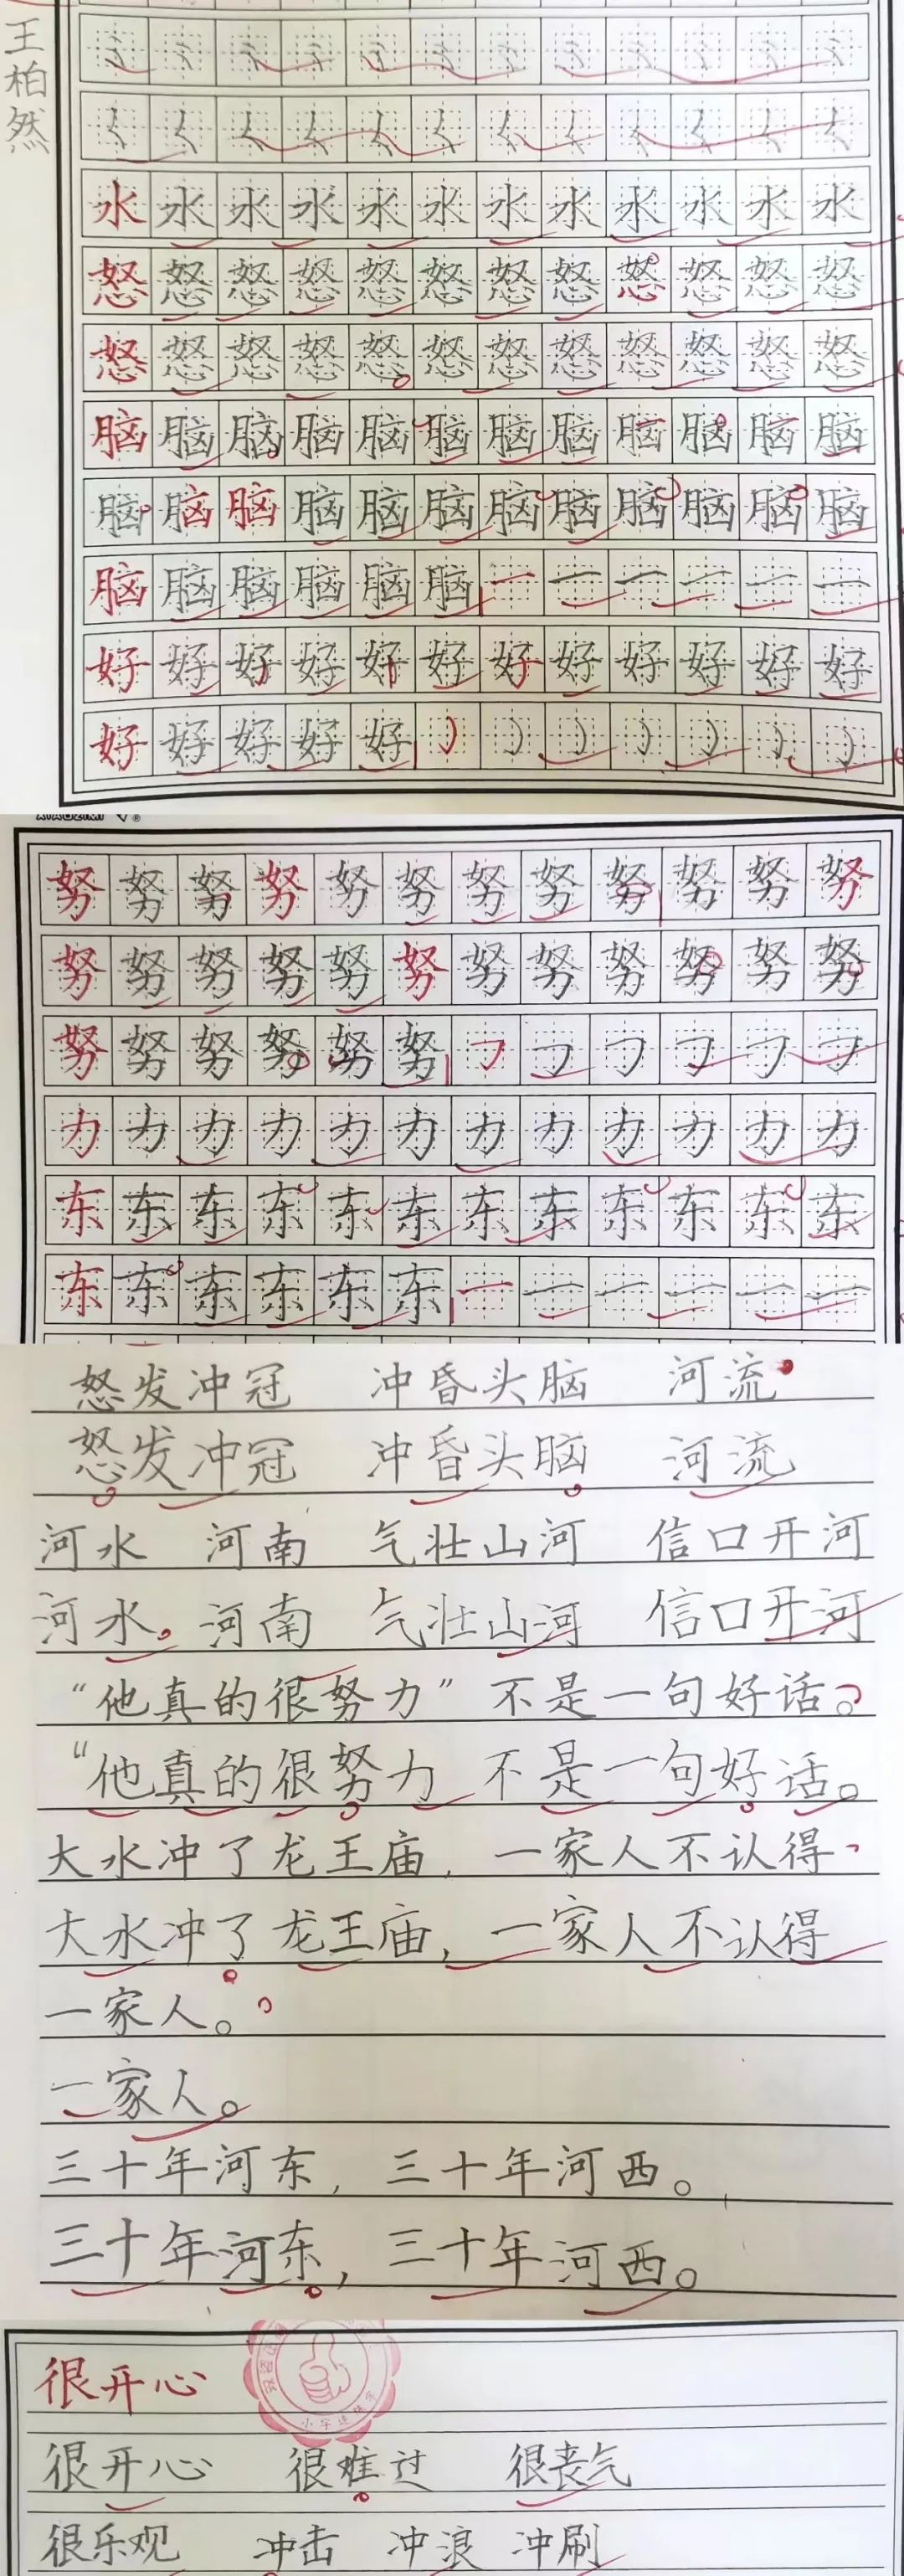 王柏然
水水水水水水水水水水水水
怒怒怒怒怒怒怒怒怒怒怒怒
怒怒怒怒怒怒怒怒怒怒怒怒
脑脑脑脑脑脑脑脑脑脑脑脑
脑脑脑脑脑脑脑脑脑脑脑脑
脑脑脑脑脑脑一一一一一一
好好好好好好好好好好好好
好好好好好
努努努努努努努努努努努努
努努努努努努努努努努努努
努努努努努努
力力力力力力力力力力力力
东东东东东东东东东东东东
东东东东东东一一一一一一
怒发冲冠 冲昏头脑 河流
怒发冲冠 冲昏头脑 河流
河水 河南 气壮山河 信口开河
河水 河南 气壮山河 信口开河
“他真的很努力”不是一句好话。
“他真的很努力 不是一句好话。
大水冲了龙王庙，一家人不认得
大水冲了龙王庙，一家人不认得
一家人。
一家人。
三十年河东，三十年河西。
三十年河东，三十年河西。
很开心
很开心 很难过 很丧气
很乐观 冲击 冲浪 冲刷